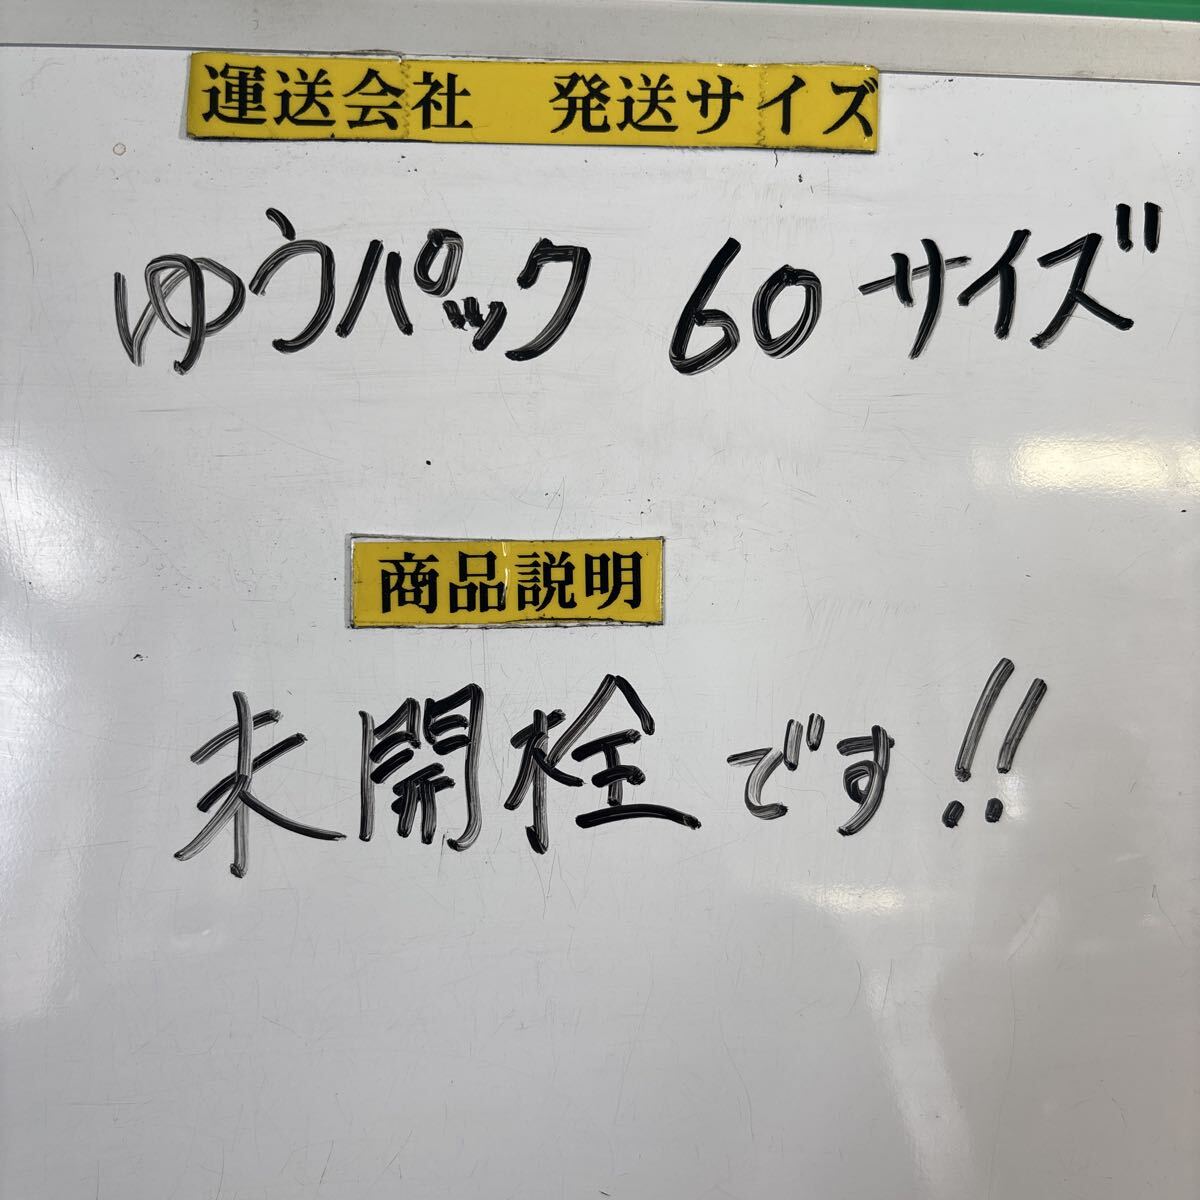 運送会社　発送サイズ
ゆうパック 60サイズ
商品説明
未開栓です!!